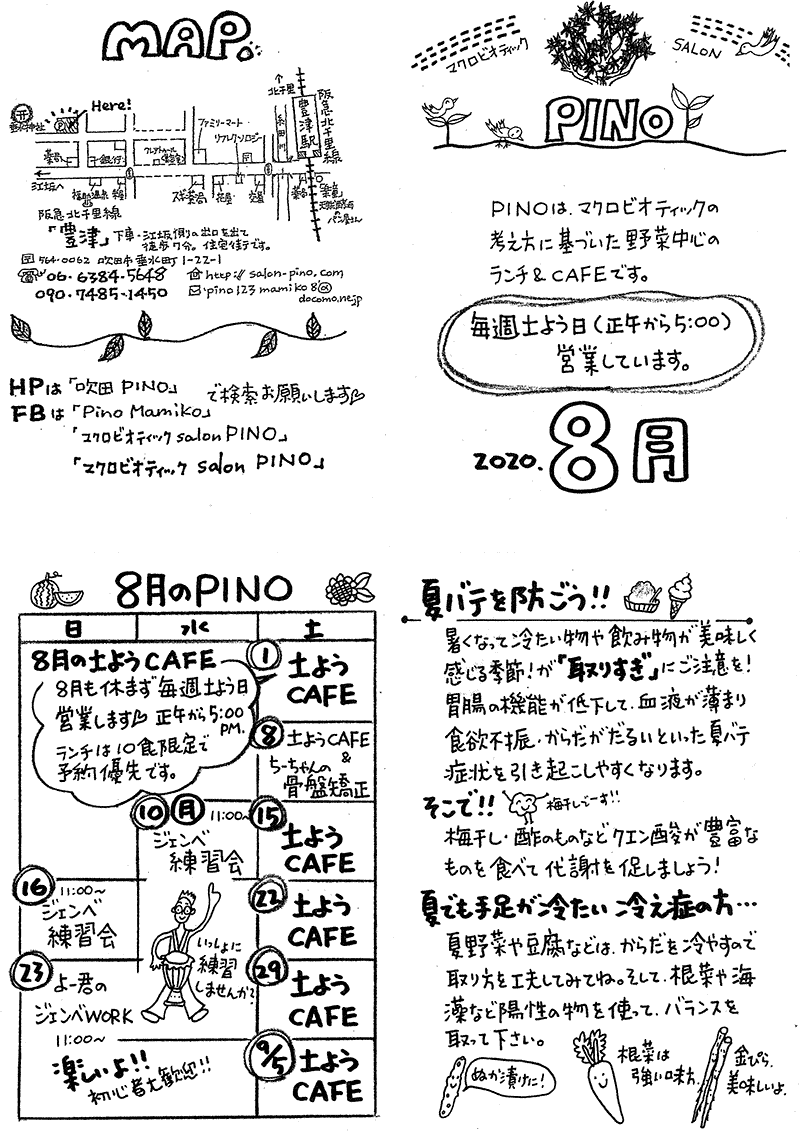 MAP.
Here!
ファミリーマート
リフレクソロジー
北千里
豊津駅
阪急北千里線
糸田川
薬局
銀行
江坂へ
スギ薬局
花屋
交番
阪急北千里線
「豊津」下車・江坂側の出口を出て
徒歩7分。住宅街です。
564-0062 吹田市垂水町1-22-1
06・6384・5648
http://salon-pino.com
090・7485・1450
pino123mamiko8@
docomo.ne.jp
HPは「吹田PINO」で検索お願いします
FBは「Pino Mamiko」
「マクロビオティック salon PINO」
「マクロビオティック salon PINO」
マクロビオティック
SALON
PINO
PINOは、マクロビオティックの
考え方に基づいた野菜中心の
ランチ&CAFEです。
毎週土よう日(正午から5:00)
営業しています。
2020. 8月
8月のPINO
日 水 土
8月の土ようCAFE
8月も休まず毎週土よう日
営業します 正午から5:00
PM.
ランチは10食限定で
予約優先です。
1 土よう
CAFE
8 土ようCAFE
&
ちーちゃんの
骨盤矯正
10 月 11:00~
ジェンベ
練習会
15 土よう
CAFE
16 11:00~
ジェンベ
練習会
いっしょに
練習
しませんか?
22 土よう
CAFE
23 よー君の
ジェンベWORK
11:00~
楽しいよ!!
初心者も歓迎!!
29 土よう
CAFE
9/5 土よう
CAFE
夏バテを防ごう!!
暑くなって冷たい物や飲み物が美味しく
感じる季節!が「取りすぎ」にご注意を!
胃腸の機能が低下して、血液が薄まり
食欲不振・からだがだるいといった夏バテ
症状を引き起こしやすくなります。
そこで!!
梅干しでーす!!
梅干し・酢のものなどクエン酸が豊富な
ものを食べて代謝を促しましょう!
夏でも手足が冷たい 冷え症の方…
夏野菜や豆腐などは、からだを冷やすので
取り方を工夫してみてね。そして、根菜や海
藻など陽性の物を使って、バランスを
取って下さい。
ぬか漬けに!
根菜は
強い味方。
金ぴら、
美味しいよ。